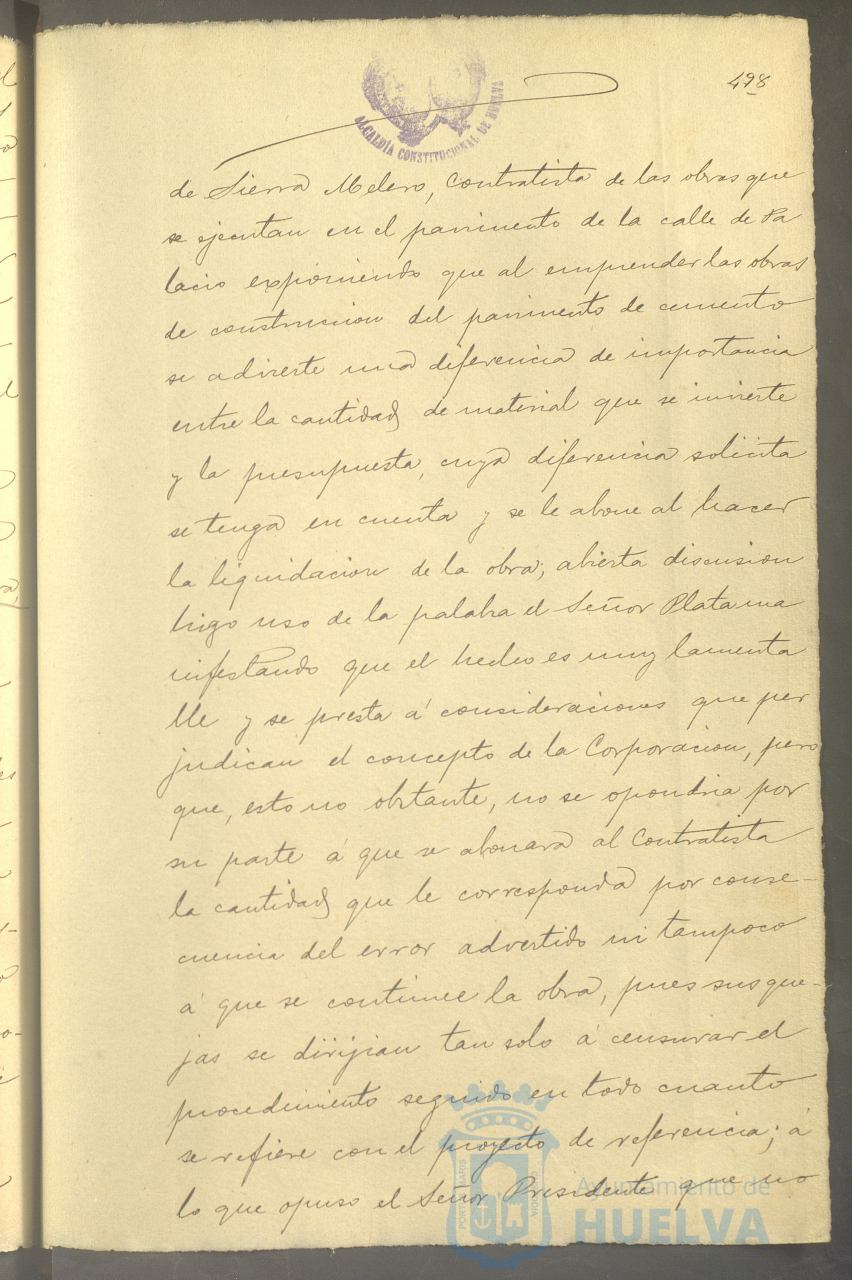 498
ALCALDÍA CONSTITUCIONAL DE HUELVA
de Sierra Melero, Contratista de las obras que
se ejecutan en el pavimento de la calle de Pa
lacio exponiendo que al emprender las obras
de construcion del pavimento de cemento
se advierte una diferencia de importancia
entre la cantidad de material que se invierte
y la presupuesta, cuya diferencia solicita
se tenga en cuenta y se le abone al hacer
la liquidacion de la obra; abierta discusion
hizo uso de la palabra el Señor Plata ma
nifestando que el hecho es muy lamenta
ble y se presta á consideraciones que per
judican el concepto de la Corporacion, pero
que, esto no obstante, no se opondria por
su parte á que se abonara al Contratista
la cantidad que le corresponda por conse-
cuencia del error advertido ni tampoco
á que se continuee la obra, pues sus que-
jas se dirijian tan solo á censurar el
procedimiento seguido en todo cuanto
se refiere con el proyecto de referencia; á
lo que opuso el Señor Presidente que no
Ayuntamiento de
HUELVA